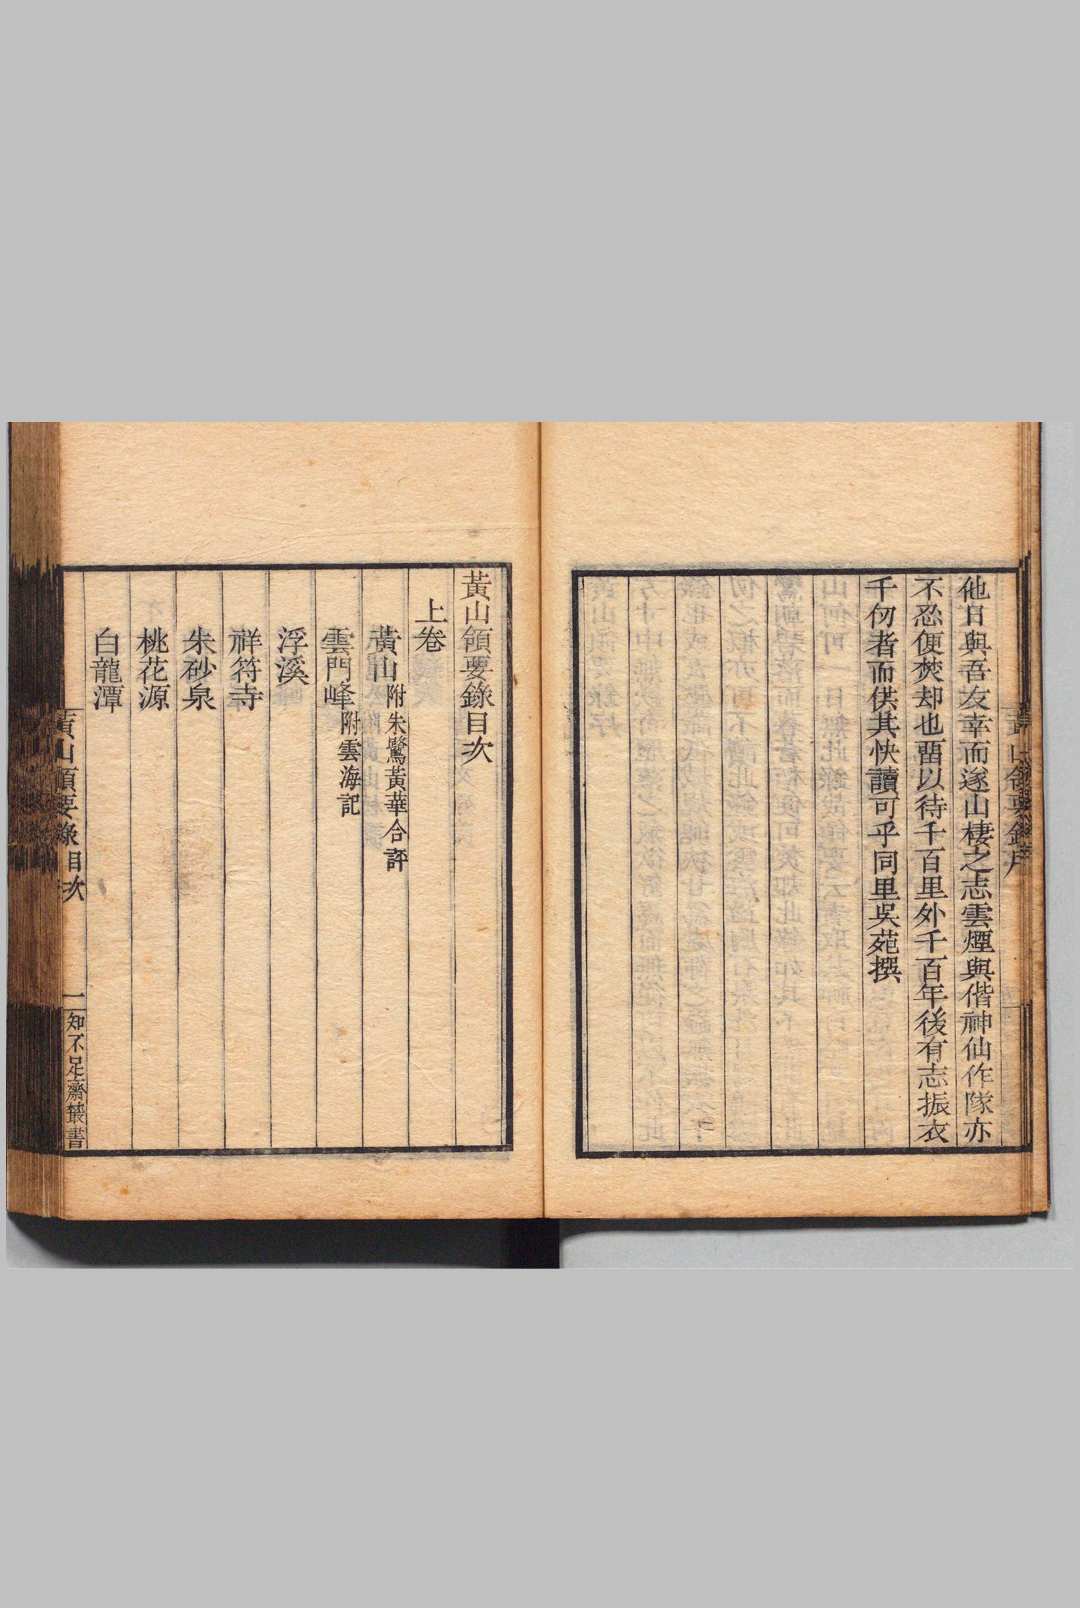 他日與吾友幸而遂山棲之志雲煙與偕神仙作隊亦
不忍便焚却也畱以待千百里外千百年後有志振衣
千仞者而供其快讀可乎同里吳苑撰
黃山領要錄目次
上卷
黃山附朱鷺黃華合評
雲門峰附雲海記
浮溪
祥符寺
朱砂泉
桃花源
白龍潭
黃山領要錄目次
一
知不足齋叢書